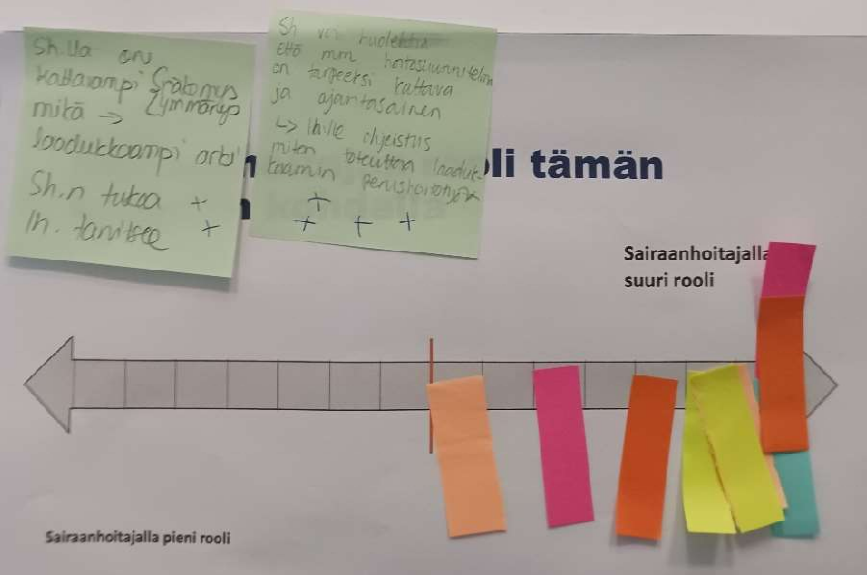 Sh.lla on
kattavampi
mikä →
laadukkaampi
Sh.n tukea +
lh. tarvitsee +
Sh voi huolehtia
että mm hoitosuunnitelma
on tarpeeksi kattava
ja ajantasainen
↳ lh:lle ohjeistus
miten toteuttaa laaduk-
kaamin perushoitotyötä
+
+ + +
oli tämän
Sairaanhoitajalla
suuri rooli
Sairaanhoitajalla pieni rooli